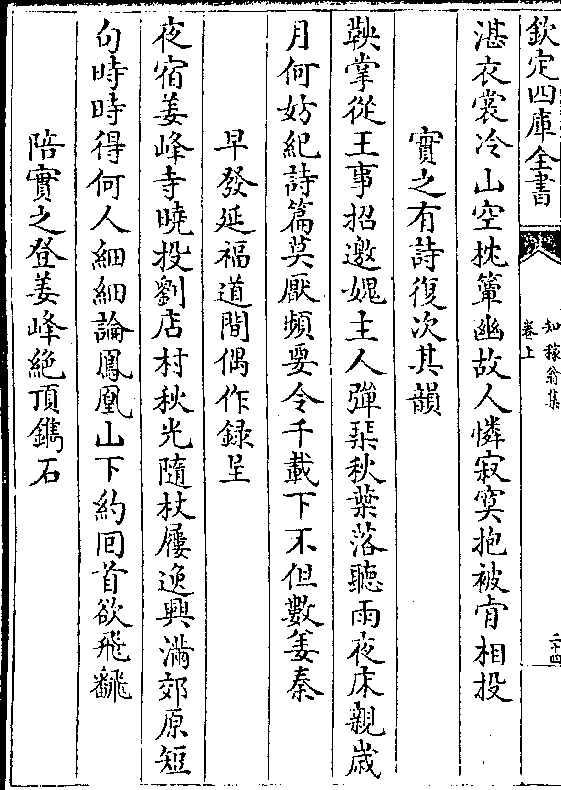 欽定四庫全書
知稼翁集
卷上
二十四
湛衣裳冷山空枕簟幽故人憐寂寞抱被肯相投
實之有詩復次其韻
鞅掌從王事招邀媿主人彈琹秋葉落聽雨夜床親歲
月何妨紀詩篇莫厭頻要令千載下不但數姜秦
早發延福道間偶作録呈
夜宿姜峰寺曉投劉店村秋光隨杖屨逸興滿郊原短
句時時得何人細細論鳳凰山下約囘首欲飛飜
陪實之登姜峰絶頂鐫石